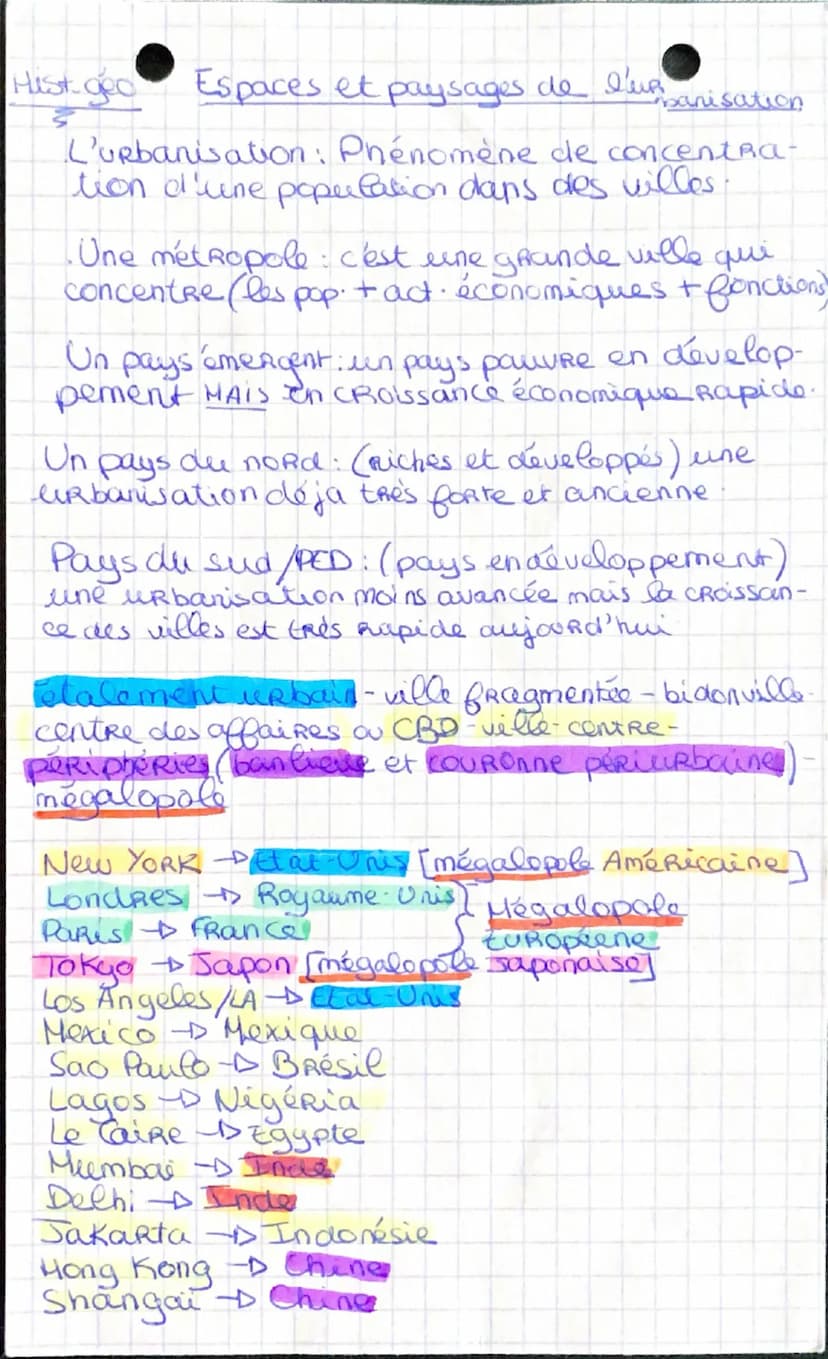 Hist-géo Espaces et paysages de l'urbanisation
L'urbanisation : Phénomène de concentra-
tion d'une population dans des villes.
.Une métropole : c'est une grande ville qui
concentre (les pop. + act. économiques + fonctions)
Un pays émergent : un pays pauvre en dévelop-
pement MAIS en croissance économique rapide.
Un pays du nord : (riches et développés) une
urbanisation déja très forte et ancienne.
Pays du sud/PED : (pays en développement)
une urbanisation moins avancée mais la croissan-
ce des villes est très rapide aujourd'hui
étalement urbain - ville fragmentée - bidonville-
centre des affaires ou CBD - ville-centre -
périphéries (banlieue et couronne périurbaine) -
mégalopole
New York → Etat-Unis [mégalopole Américaine]
Londres → Royaume-Unis } Mégalopole
Paris → France } Européene
Tokyo → Japon [mégalopole Japonaise]
Los Angeles/LA → Etat-Unis
Mexico → Mexique
Sao Paulo → Brésil
Lagos → Nigéria
Le Caire → Egypte
Mumbai → Inde
Delhi → Inde
Jakarta → Indonésie
Hong Kong → Chine
Shangaï → Chine